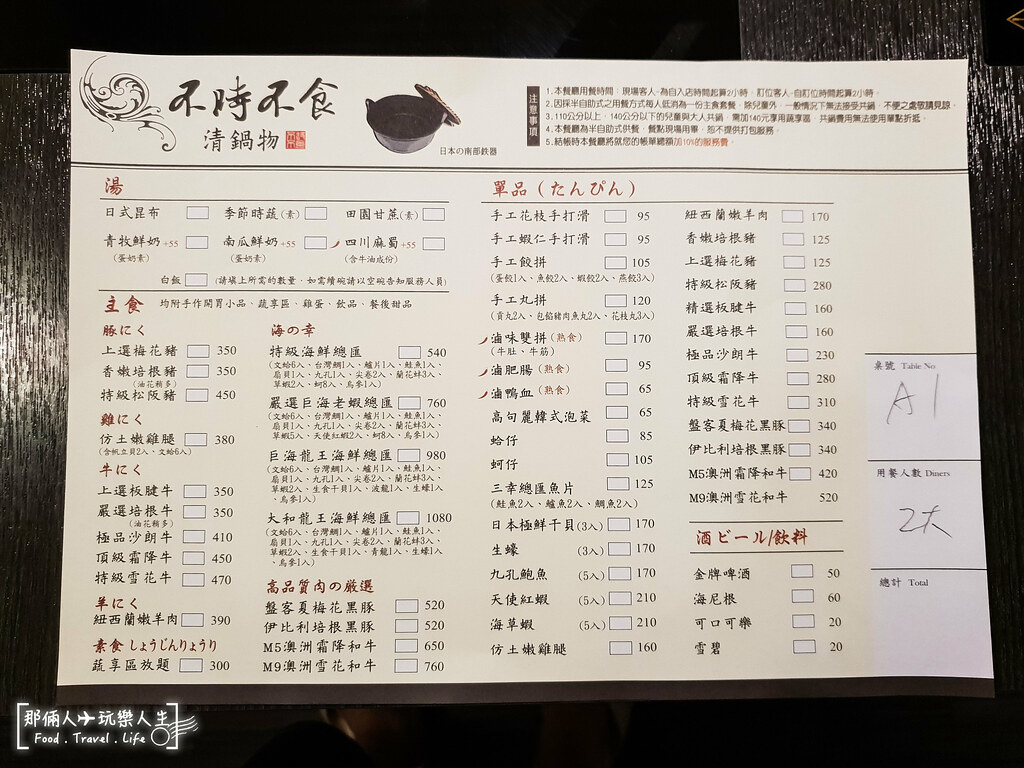 不時不食
清鍋物
日本の南部鉄器
注意事項
1.本餐廳用餐時間：現場客人-為自入店時間起算2小時，訂位客人-自訂位時間起算2小時。
2.因採半自助式之用餐方式每人低消為一份主食套餐，除兒童外，一般情況下無法接受共鍋，不便之處敬請見諒。
3.110公分以上，140公分以下的兒童與大人共鍋，需加140元享用蔬享區，共鍋費用無法使用單點折抵。
4.本餐廳為半自助式供餐，餐點現場用畢，恕不提供打包服務。
5.結帳時本餐廳將就您的帳單總額加10%的服務費。
湯
日式昆布 季節時蔬(素) 田園甘蔗(素)
青牧鮮奶+55 南瓜鮮奶+55 四川麻蜀+55
(蛋奶素) (蛋奶素) (含牛油成份)
白飯 (請填上所需的數量，如需續碗請以空碗告知服務人員)
主食 均附手作開胃小品、蔬享區、雞蛋、飲品、餐後甜品
豚にく
上選梅花豬 350
香嫩培根豬 350
(油花稍多)
特級松阪豬 450
雞にく
仿土嫩雞腿 380
(含帆立貝2入、文蛤6入)
牛にく
上選板腱牛 350
嚴選培根牛 350
(油花稍多)
極品沙朗牛 410
頂級霜降牛 450
特級雪花牛 470
羊にく
紐西蘭嫩羊肉 390
素食 しょうじんりょうり
蔬享區放題 300
海の幸
特級海鮮總匯 540
(文蛤6入、台灣鯛1入、鱸片1入、鮭魚1入、
扇貝1入、九孔1入、尖卷2入、蘭花蚌3入、
草蝦2入、蚵8入、烏參1入)
嚴選巨海老蝦總匯 760
(文蛤6入、台灣鯛1入、鱸片1入、鮭魚1入、
扇貝1入、九孔1入、尖卷2入、蘭花蚌3入、
草蝦5入、天使紅蝦2入、蚵8入、烏參1入)
巨海龍王海鮮總匯 980
(文蛤6入、台灣鯛1入、鱸片1入、鮭魚1入、
扇貝1入、九孔1入、尖卷2入、蘭花蚌3入、
草蝦2入、生食干貝1入、波龍1入、生蠔1入、
烏參1入)
大和龍王海鮮總匯 1080
(文蛤6入、台灣鯛1入、鱸片1入、鮭魚1入、
扇貝1入、九孔1入、尖卷2入、蘭花蚌3入、
草蝦2入、生食干貝1入、青龍1入、生蠔1入、
烏參1入)
高品質肉の厳選
盤客夏梅花黑豚 520
伊比利培根黑豚 520
M5澳洲霜降和牛 650
M9澳洲雪花和牛 760
單品（たんぴん）
手工花枝手打滑 95
手工蝦仁手打滑 95
手工餃拼 105
(蛋餃1入、魚餃2入、蝦餃2入、燕餃3入)
手工丸拼 120
(貢丸2入、包餡豬肉魚丸2入、花枝丸3入)
滷味雙拼(熟食) 170
(牛肚、牛筋)
滷肥腸(熟食) 95
滷鴨血(熟食) 65
高句麗韓式泡菜 65
蛤仔 85
蚵仔 105
三幸總匯魚片 125
(鮭魚2入、鱸魚2入、鯛魚2入)
日本極鮮干貝(3入) 170
生蠔 (3入) 170
九孔鮑魚 (5入) 170
天使紅蝦 (5入) 210
海草蝦 (5入) 210
仿土嫩雞腿 160
紐西蘭嫩羊肉 170
香嫩培根豬 125
上選梅花豬 125
特級松阪豬 280
精選板腱牛 160
嚴選培根牛 160
極品沙朗牛 230
頂級霜降牛 280
特級雪花牛 310
盤客夏梅花黑豚 340
伊比利培根黑豚 340
M5澳洲霜降和牛 420
M9澳洲雪花和牛 520
酒ビール/飲料
金牌啤酒 50
海尼根 60
可口可樂 20
雪碧 20
桌號 Table No
A1
用餐人數 Diners
2大
總計 Total
那倆人 玩樂人生
Food . Travel . Life